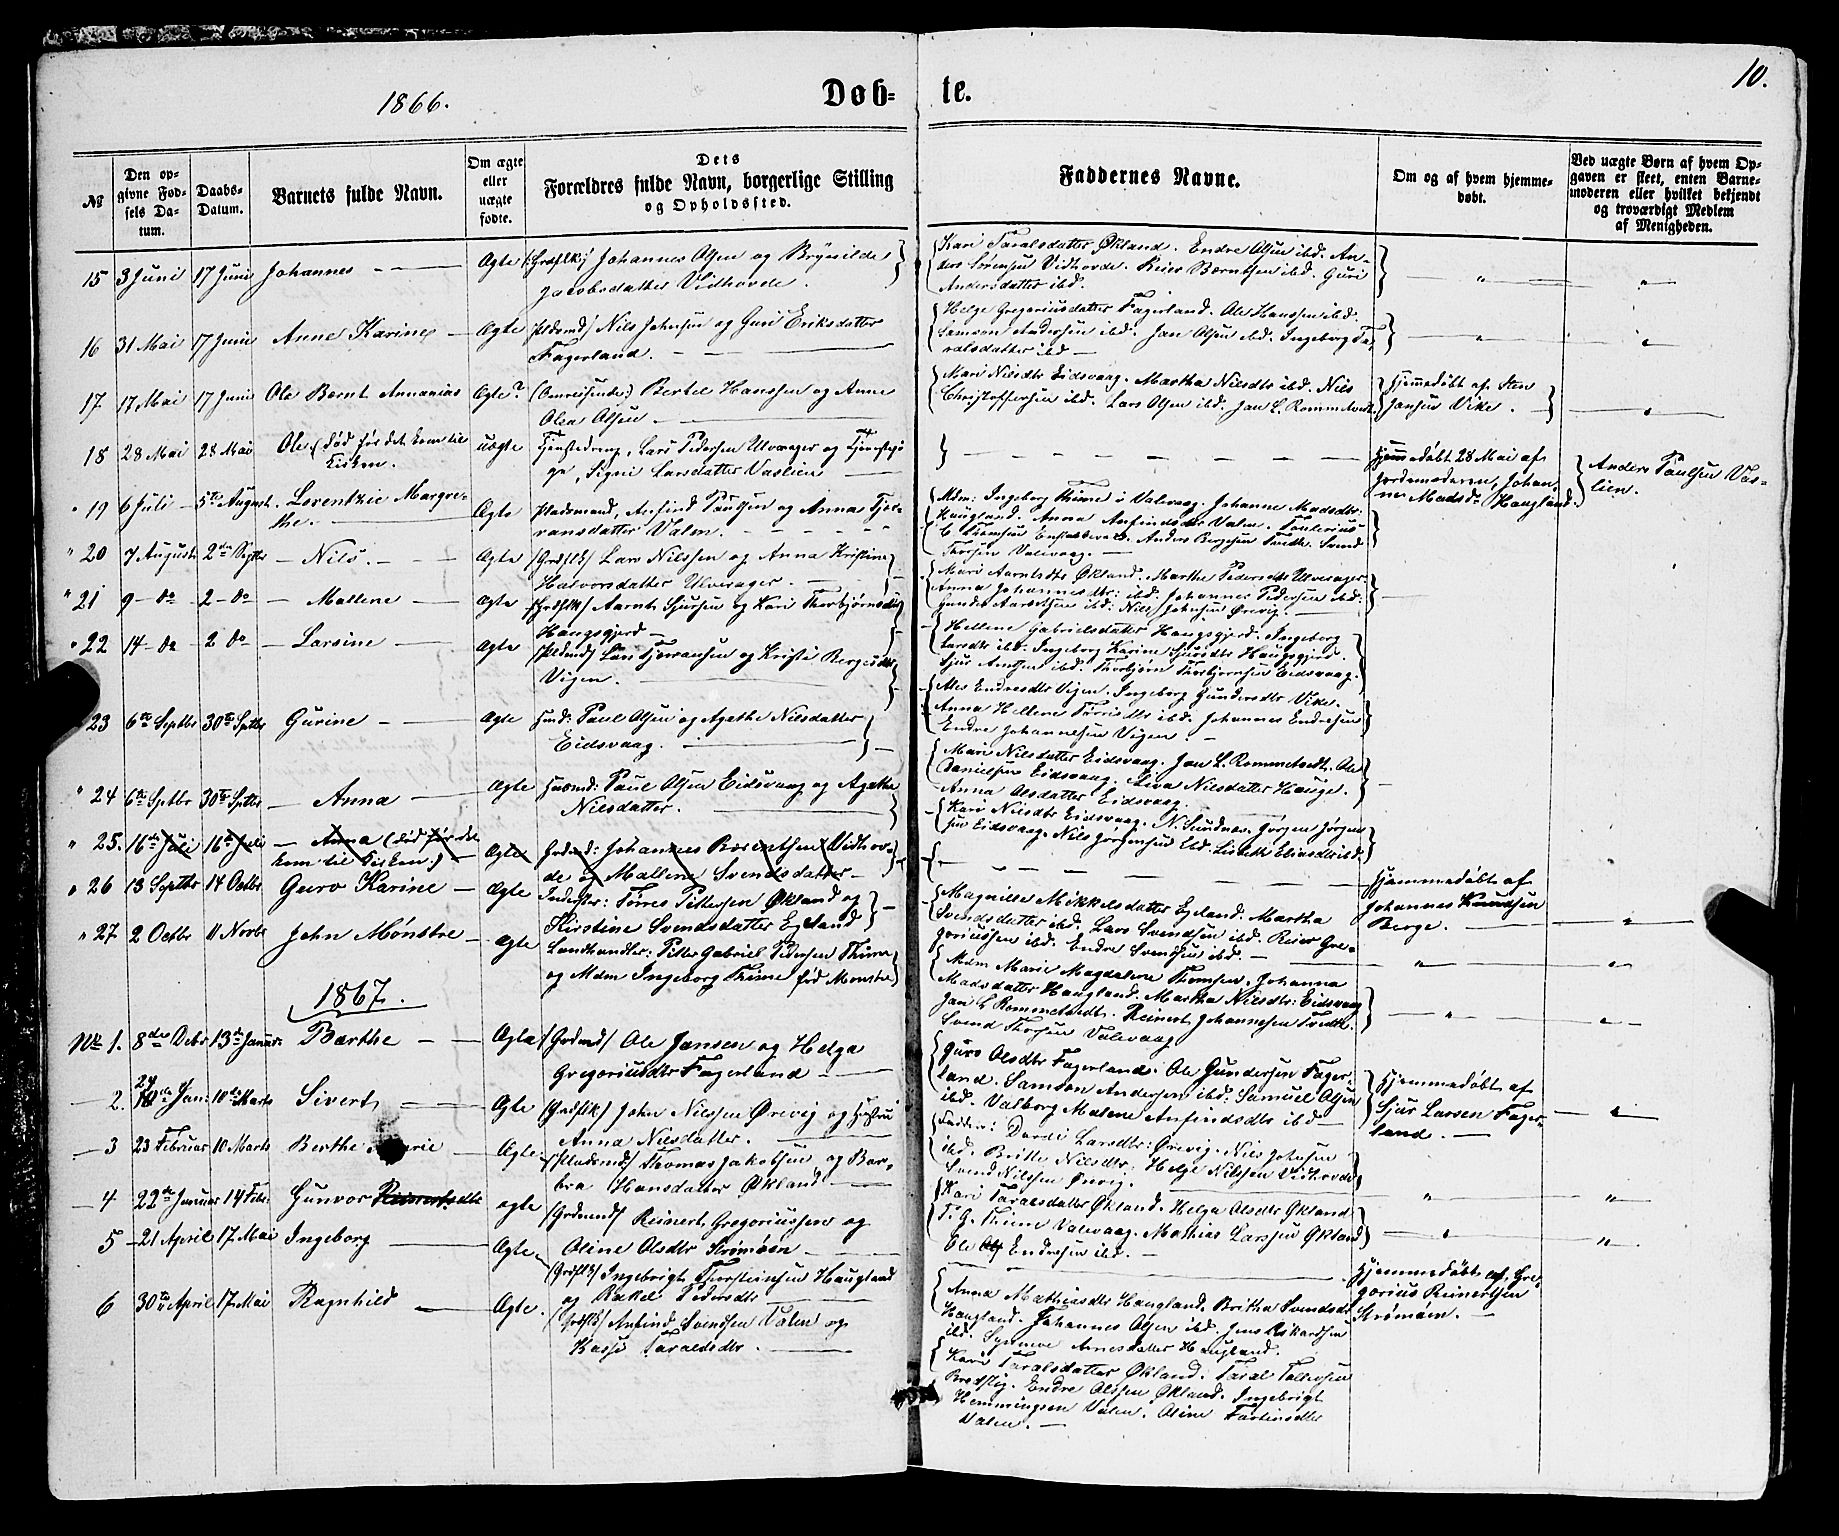 1866.
Døb-
te.
10.
№
Den op-
givne Fød-
sels Da-
tum.
Daabs-
Datum.
Barnets fulde Navn.
Om ægte
eller
uægte
fødte.
Dets
Forældres fulde Navn, borgerlige Stilling
og Opholdssted.
Faddernes Navne.
Om og af hvem hjemme-
døbt.
Ved uægte Børn af hvem Op-
gaven er skeet, enten Barne-
moderen eller hvilket bekjendt
og troværdigt Medlem
af Menigheden.
15 3 Juni 17 Juni Johannes Ægte Johannes Olsen og Brynilde
Jacobsdatter Vidhovde.
Kari Taralsdatter Økland. Endre Olsen ibd. An-
ders Sørensen Vidhovde. Reier Børntsen ibd. Guri
Andersdatter ibd.
16 31 Mai 17 Juni Anne Karine Ægte Nils Johnsen og Guri Eriksdatter
Fagerland.
Helge Gregoriusdatter Fagerland. Ole Hanssen ibd.
Samson Andersen ibd. Jan Olsen ibd. Ingeborg Ta-
ralsdatter ibd
17 17 Mai 17 Juni Ole Bernt Annanias Ægte? (Omreisende) Bertel Hanssen og Anne
Olea Olsen
Mari Nilsdtr Eidsvaag. Martha Nilsdtr ibd. Nils
Christoffersen ibd. Lars Olsen ibd. Jan L. Rommetvedt
Hjemmedøbt af Sten
Jansen Vike.
18 28 Mai 28 Mai Ole (død før det kom til
Kirken.
uægte Tjenstedreng, Lars Pedersen Ulveager og Tjenstepi-
ge, Signi Larsdatter Vaslien
Hjemmedøbt 28 Mai af
Jordemoderen, Johan-
ne Madsd. Haugland.
Anders Paulsen Vas-
lien.
19 6 Juli 5te August Lorentzie Margre-
the.
Ægte Pladsmand, Anfind Poulsen og Anna Tjer-
ransdatter Valen.
Mdm: Ingeborg Thime i Valevaag. Johanne Madsdtr
Haugland. Anna Anfindsdtr Valen.
Anders Bergesen Tvedte. Svend
Thorsen Valevaag.
20 7 August 2de Septbr Nils. Ægte Lars Nilssen og Anna Kristine
Halvorsdatter Ulveager.
Mari Aarntsdtr Økland. Marthe Pedersdtr Ulveager
Anna Johannesdtr ibd. Johannes Pedersen ibd.
Nils Johnsen Ørevig.
21 9 do 2 do Mallene Ægte Aarnt Sjursen og Kari Thorbjørnsdtr
Haugsgjerd
Hellene Gabrielsdatter Haugsgjerd. Ingeborg
Larsdtr ibd. Ingeborg Karine Sjursdtr Haugsgjerd.
Sjur Arntsen ibd. Thorbjørn Thorbjørnsen Eidsvaag.
22 14 do 2 do Larsine Ægte Lars Tjerransen og Kristi Bergesdtr
Vigen.
Endresdtr Vigen. Ingeborg Gundersdtr Vike.
Anna Hellene ibd. Johannes Endresen
Endre Johannesen Vigen.
23 6te Septbr 30te Septbr Gurine Ægte Paul Olsen og Agathe Nilsdatter
Eidsvaag.
Mari Nilsdatter Eidsvaag. Jan L. Rommetvedt. Ole
Danielsen Eidsvaag. Siva Nilsdatter Hauge.
Anna Olsdatter Eidsvaag.
24 6te Septbr 30te Septbr Anna Ægte Huusmd: Paul Olsen Eidsvaag og Agathe
Nilsdatter.
Kari Nilsdtr Eidsvaag. N. Sundnes. Jørgen Jørgen-
sen Eidsvaag. Nils Jørgensen ibd. Lisbeth Eliasdtr ibd.
25. 16de Juli 16de Juli Anna (død før det
kom til Kirken.)
Ægte Johannes Børentsen Vidhov-
de og Mallene Svendsdatter
26 13 Septbr 14 Octbr Guro Karine Ægte Inderster: Tørres Pettersen Økland og
Kirstine Svendsdatter Egeland
Magnilde Mikkelsdatter Egeland. Martha
Svendsdatter ibd. Lars Svendsen ibd. Reier Gre-
goriussen ibd. Endre Svendsen ibd.
Hjemmedøbt af
Johannes Knudsen
Berge.
27 2 Octbr 11 Novbr John Mønstre Ægte Landhandler: Peter Gabriel Pedersen Thime
og Mdm Ingeborg Thime fød Monstre
Mdm Marie Magdalene Thomsen, Johanna
Madsdatter Haugland. Martha Nilsdtr: Eidsvaag
Jan L Rommetvedt. Reinert Johannesen Tvedte.
Svend Thorsen Valevaag
1867.
No 1. 8de Debr 13de Januar Bærthe Ægte Ole Jansen og Helga
Gregoriusdtr Fagerland
Guro Olsdtr Fagerland. Ole Gundersen Fager-
land. Samson Andersen ibd. Samuel Olsen
ibd. Valborg Malene Anfindsdtr ibd
Hjemmedøbt af
Sjur Larsen Fager-
land.
2. 24 Jan: 10de Marts Sivert Ægte John Nilssen Ørevig og Hustru
Anna Nilsdatter.
Faddere: Dordi Larsdtr: Ørevig. Nils Johnsen
ibd. Britte Nilsdtr: Helge Nilssen Vidhovde
Svend Nilssen Ørevig.
3 23 Februar 10 Marts Berthe Marie Ægte Thomas Jakobsen og Bar-
bra Hansdatter Økland
Kari Taralsdatter Økland. Helga Olsdtr Økland
P. G. Thime Valevaag. Mathias Larssen Økland
Ole Endresen ibd.
4 22de Januar 14 Febr. Gunvor Reinertsdtr ægte Reinert Gregoriussen og
Oline Olsdtr Strømøen
Hjemmedøbt af Gre-
gorius Reinertsen
Strømøen.
5 21 April 17 Mai Ingeborg Ægte Ingebrigt Thorsteinsen Haugland
og Rakel Pedersdtr
Anna Mathiasdtr Haugland. Britha Svendsdtr
Haugland. Johannes Olsen ibd. Jens Rikardsen
ibd. Synneve Arnesdatter Haugland.
6 30te April 17 Mai Ragnhild Ægte. Anfind Svendsen Valen og
Kasse Taraldsdtr.
Kari Taralsdatter Økland. Taral Tollevsen
Bredstig. Endre Olssen Økland. Ingebrigt
Hemmingsen Valen. Oline
Valen.